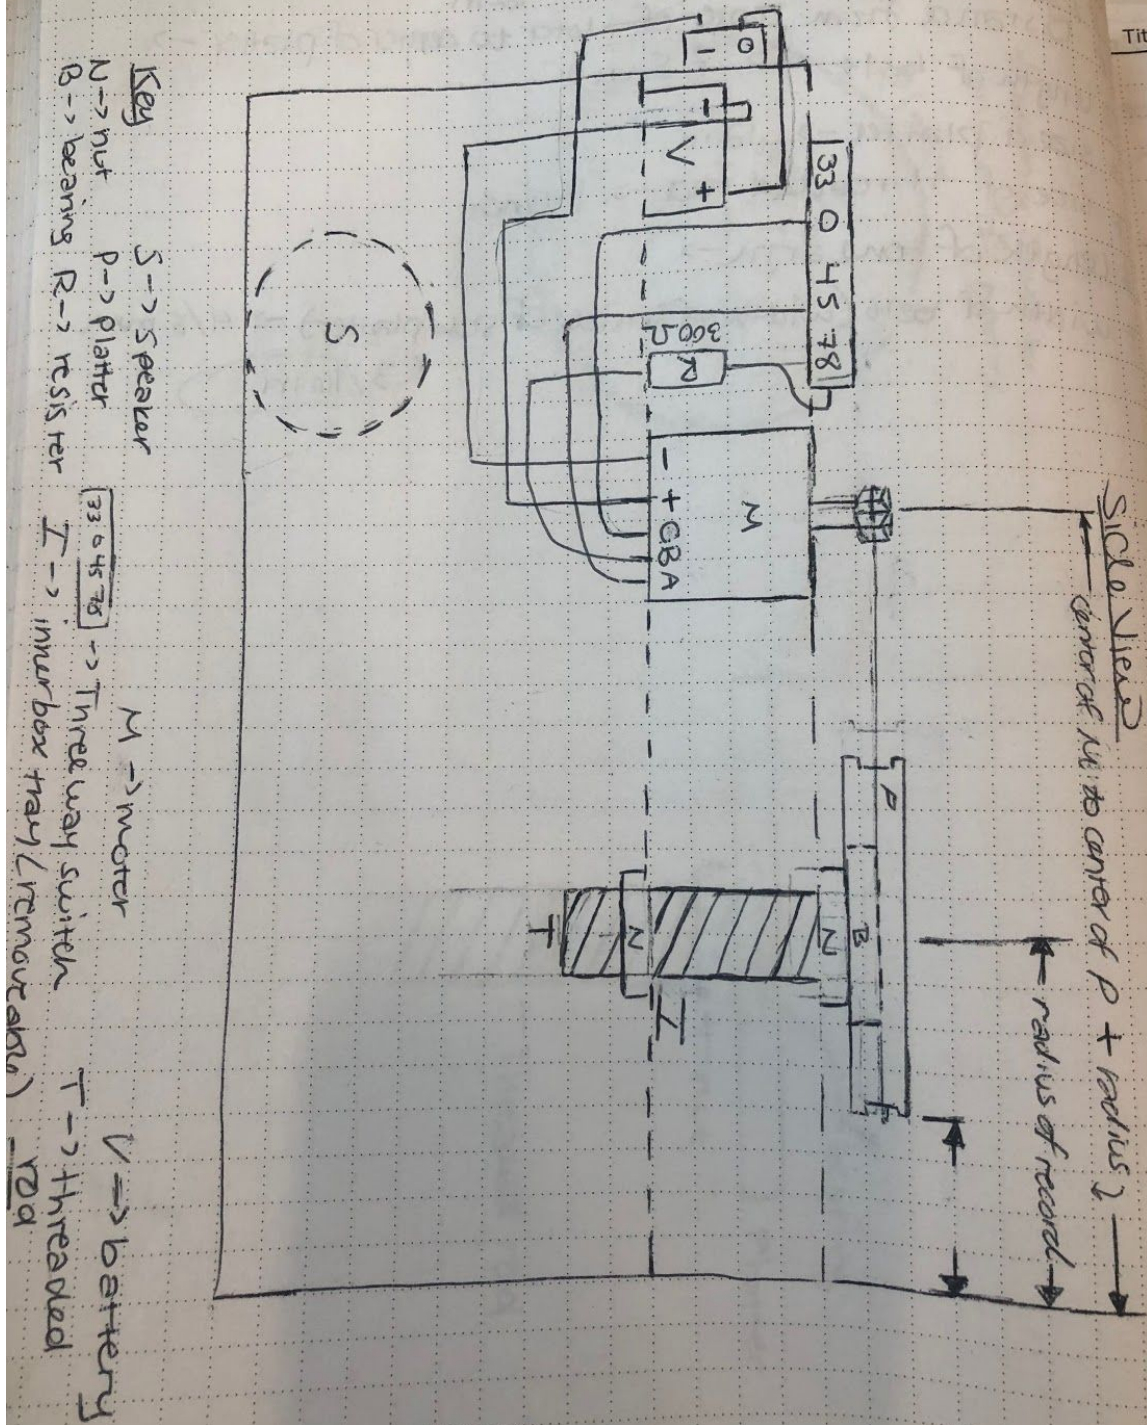 Tit
Side View
center of M to center of P + radius
radius of record
33 0 45 78
0 -
- V +
300Ω
R
M
- + C B A
P
B
N
N
I
T
S
Key
N -> nut
B -> bearing
S -> speaker
P -> platter
R -> resister
M -> motor
33 0 45 78 -> Three way switch
I -> inner box tray (removeable)
V => battery
T -> threaded
rod